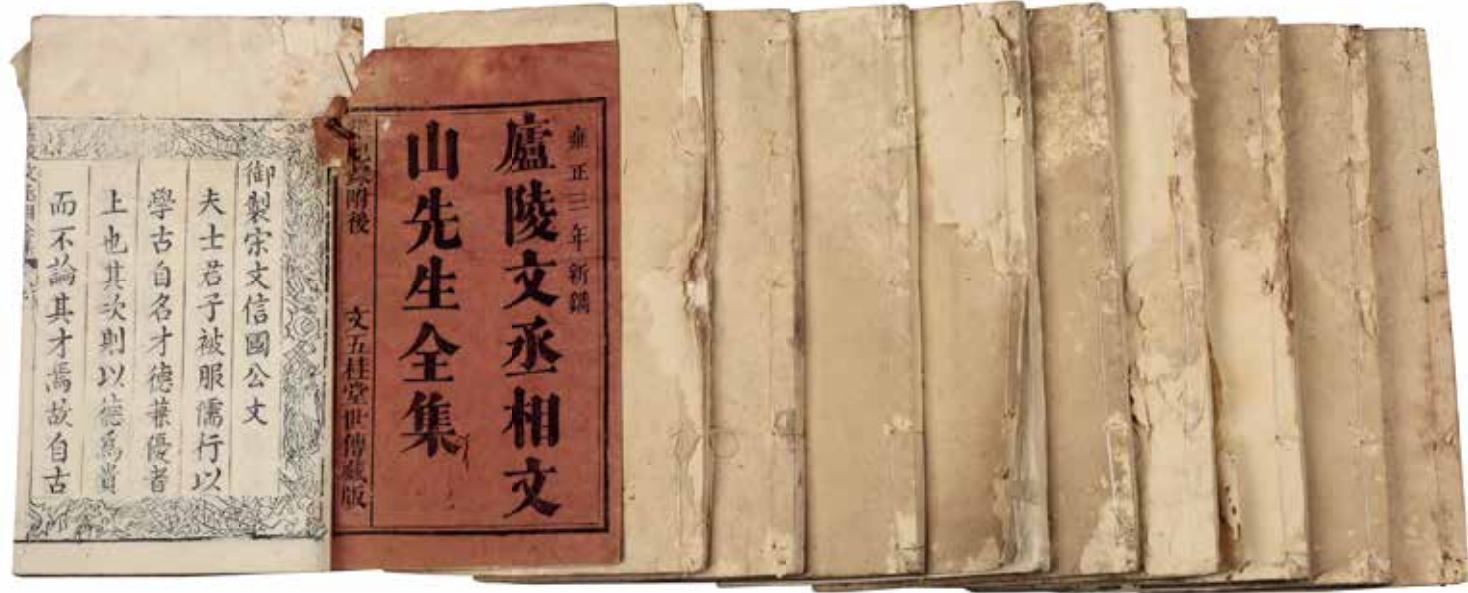 雍正三年新鐫
廬陵文丞相文
山先生全集
附後
文五桂堂世傳藏版
御製宋文信國公文
夫士君子被服儒行以
學古自名才德兼優者
上也其次則以德爲貴
而不論其才焉故自古